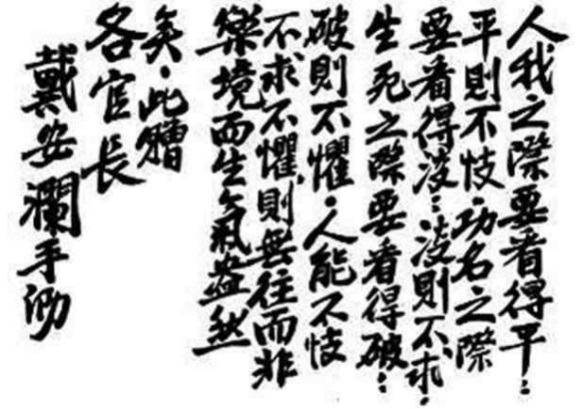 人我之際要看得平：
平則不忮。功名之際
要看得淡：淡則不求。
生死之際要看得破：
破則不懼。人能不忮
不求不懼，則無往而非
樂境而生氣盎然
矣。此贈
各官長
戴安瀾手泐